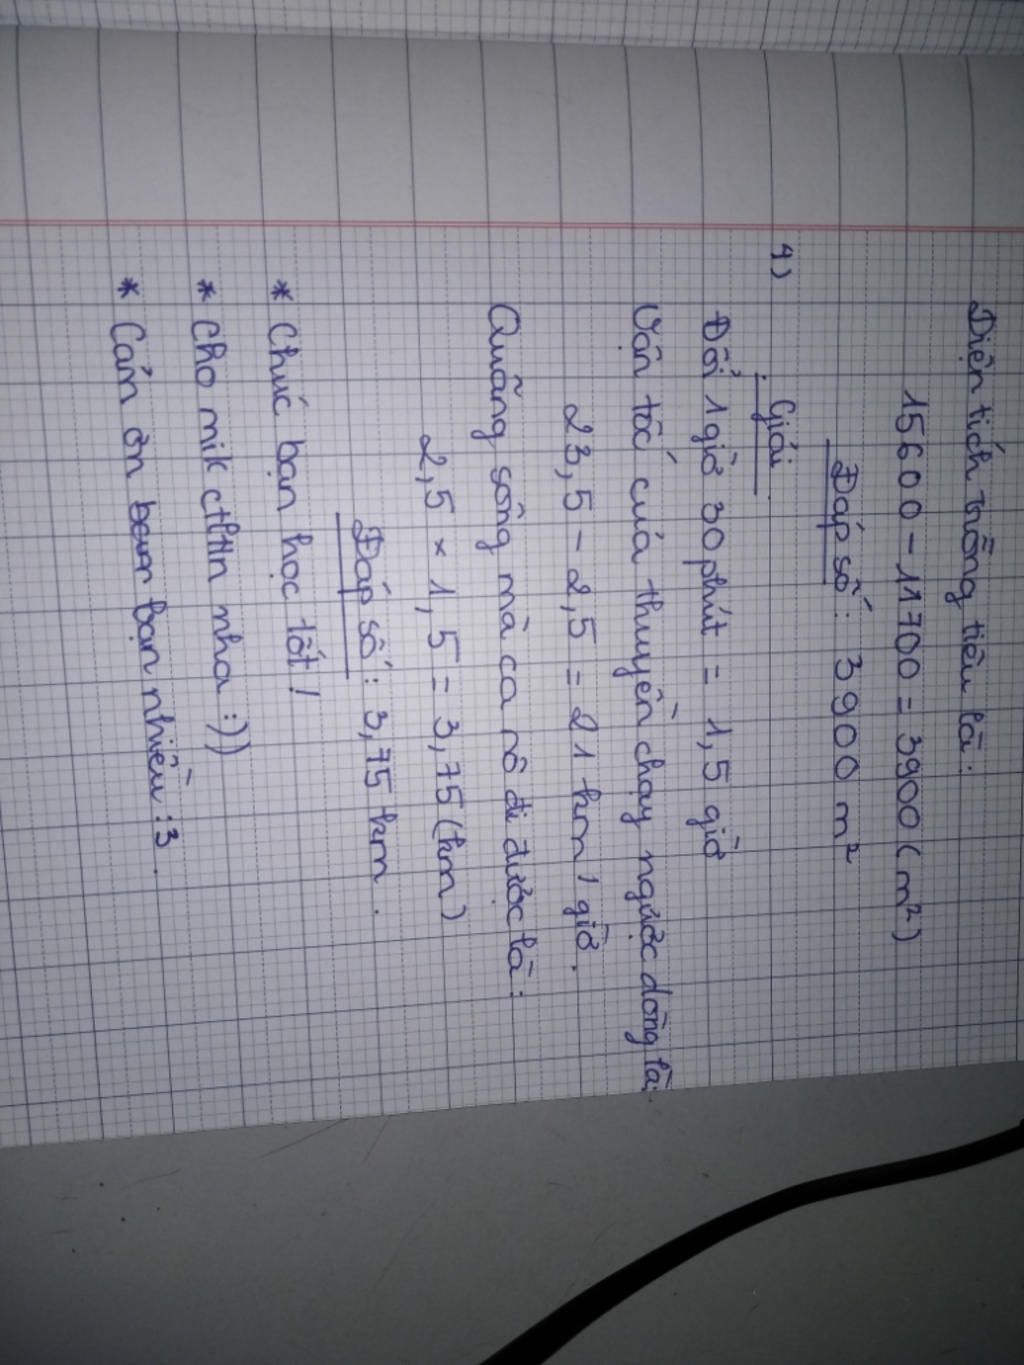 Diện tích trồng tiêu là:
15600 - 11700 = 3900 (m²)
Đáp số: 3900 m²
4)
Giải
Đổi 1 giờ 30 phút = 1,5 giờ
Vận tốc của thuyền chạy ngược dòng là
23,5 - 2,5 = 21 km / giờ.
Quãng sông mà ca nô đi được là:
2,5 × 1,5 = 3,75 (km)
Đáp số: 3,75 km.
* Chúc bạn học tốt!
* Cho mik ctlHn nha :))
* Cảm ơn bạn nhiều :3